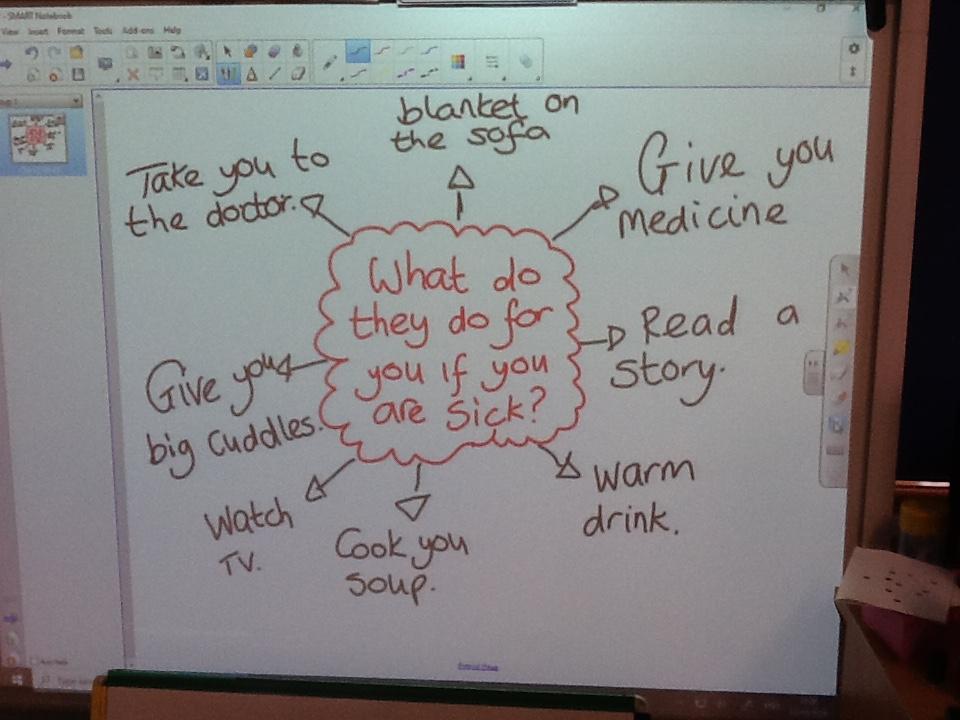 SMART Notebook
View Insert Format Tools Add-ons Help
blanket on
the sofa
Take you to
the doctor.
Give you
medicine
What do
they do for
you if you
are sick?
Read a
story.
Give you
big cuddles.
warm
drink.
Watch
TV.
Cook you
soup.